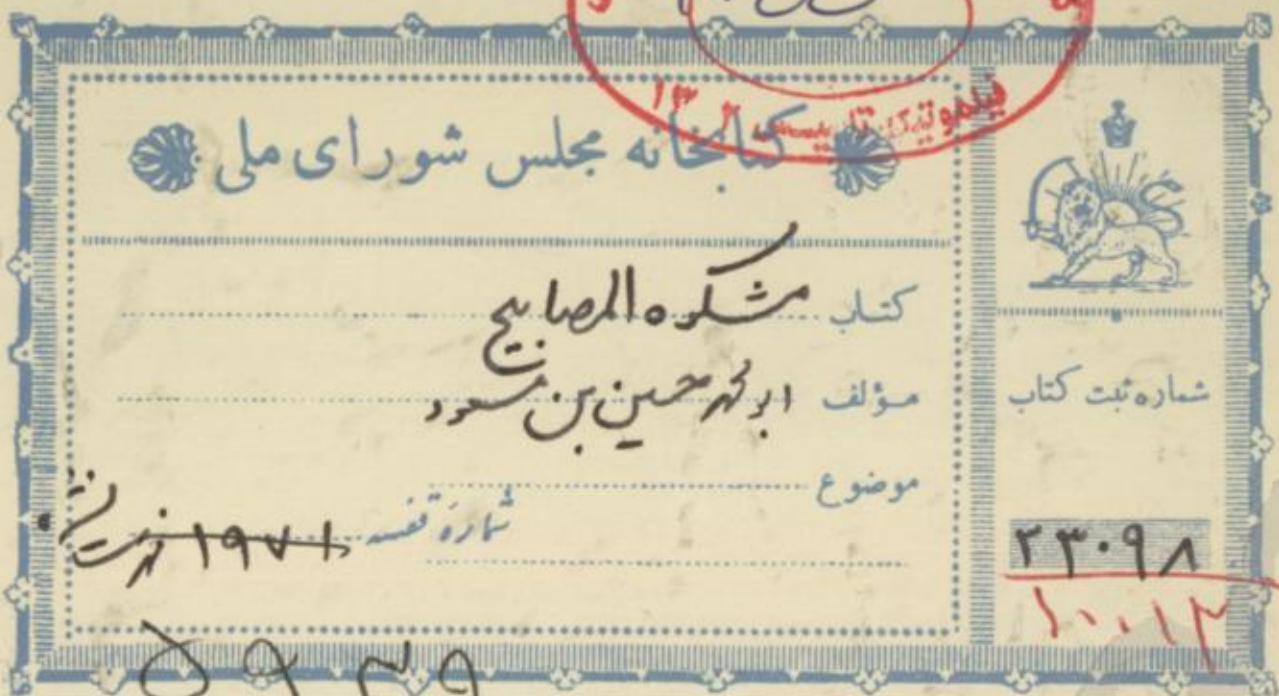 کتابخانه مجلس شورای ملی
کتاب مشکوه المصابیح
مؤلف ابو محمد حسین بن مسعود
موضوع
شماره قفسه ۱۹۷۱
شماره ثبت کتاب
۲۳۰۹۸
۱۰۰۱۳
۵۹۳۹